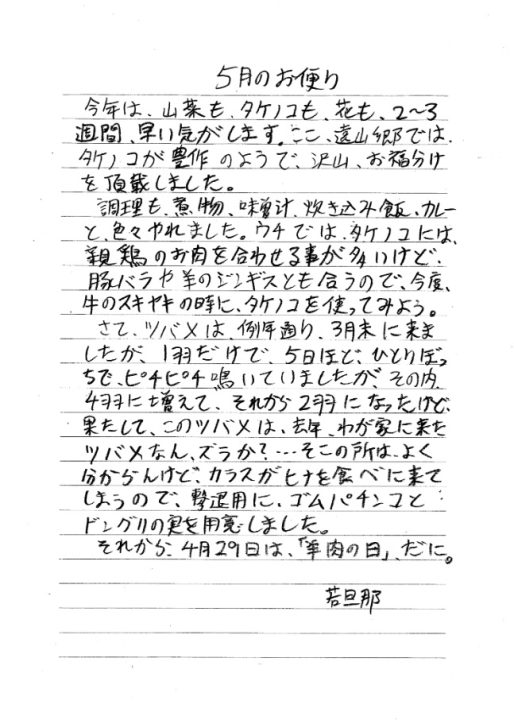 5月のお便り
今年は、山菜も、タケノコも、花も、2〜3
週間、早い気がします。ここ、遠山郷では、
タケノコが豊作のようで、沢山、お福分け
を頂戴しました。
調理も、煮物、味噌汁、炊き込み飯、カレー
と、色々やれました。ウチでは、タケノコには、
親鶏のお肉を合わせる事が多いけど、
豚バラや羊のジンギスとも合うので、今度、
牛のスキヤキの時に、タケノコを使ってみよう。
さて、ツバメは、例年通り、3月末に来ま
したが、1羽だけで、5日ほど、ひとりぼっ
ちで、ピチピチ鳴いていましたが、その内、
4羽に増えて、それから2羽になったけど、
果たして、このツバメは、去年、わが家に来た
ツバメなん、ズラか?…そこの所は、よく
分からんけど、カラスがヒナを食べに来て
しまうので、撃退用に、ゴムパチンコと
ドングリの実を用意しました。
それから、4月29日は、「羊肉の日」、だに。
若旦那